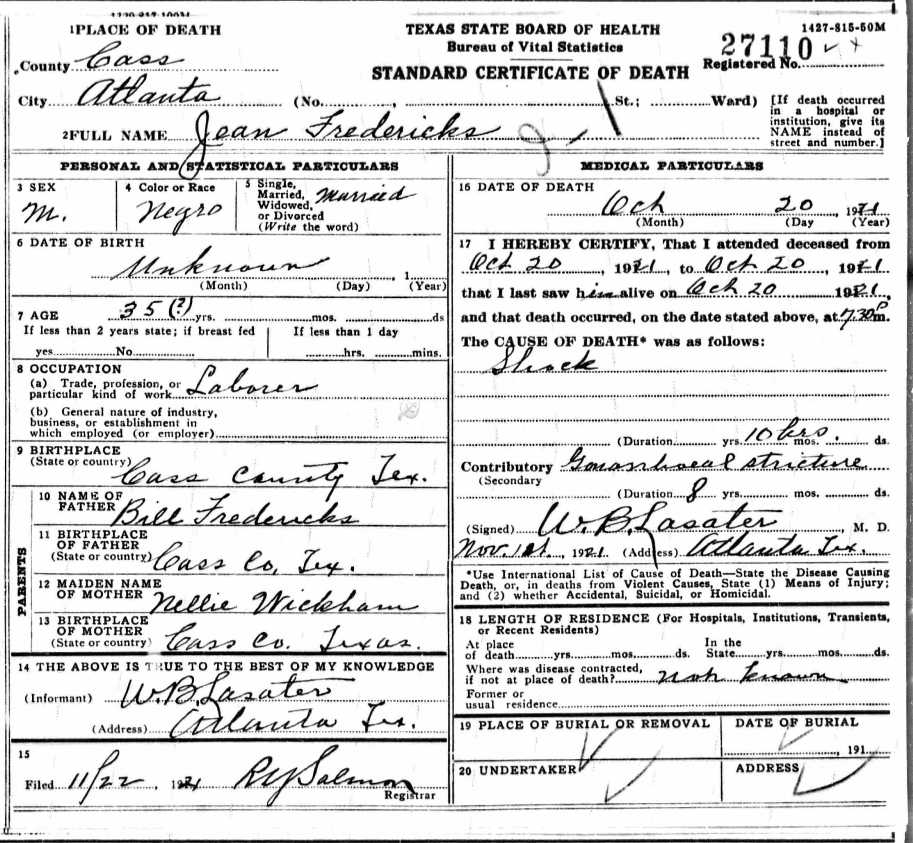 1PLACE OF DEATH
County Cass
City Atlanta (No. , St.; Ward)
2FULL NAME Jean Fredericks
TEXAS STATE BOARD OF HEALTH
Bureau of Vital Statistics
STANDARD CERTIFICATE OF DEATH
1427-815-50M
27110
Registered No.
[If death occurred in a hospital or institution, give its NAME instead of street and number.]
PERSONAL AND STATISTICAL PARTICULARS
3 SEX
M.
4 Color or Race
Negro
5 Single, Married, Widowed, or Divorced
(Write the word)
Married
6 DATE OF BIRTH
Unknown , 1
(Month) (Day) (Year)
7 AGE 35 (?) yrs. mos. ds
If less than 2 years state; if breast fed
yes No
If less than 1 day
hrs. mins.
8 OCCUPATION
(a) Trade, profession, or
particular kind of work Laborer
(b) General nature of industry,
business, or establishment in
which employed (or employer)
9 BIRTHPLACE
(State or country)
Cass County Tex.
PARENTS
10 NAME OF
FATHER Bill Fredericks
11 BIRTHPLACE
OF FATHER
(State or country) Cass Co, Tex.
12 MAIDEN NAME
OF MOTHER Nellie Wickham
13 BIRTHPLACE
OF MOTHER
(State or country) Cass Co. Texas.
14 THE ABOVE IS TRUE TO THE BEST OF MY KNOWLEDGE
(Informant) W.B. Lasater
(Address) Atlanta Tex.
15
Filed 11/22 , 1921 RY Salmon
Registrar
MEDICAL PARTICULARS
16 DATE OF DEATH
Oct 20 1921
(Month) (Day (Year)
17 I HEREBY CERTIFY, That I attended deceased from
Oct 20 , 1921, to Oct 20 , 1921
that I last saw him alive on Oct 20 1921,
and that death occurred, on the date stated above, at 7.30 P m.
The CAUSE OF DEATH* was as follows:
Shock
(Duration yrs. 10 hrs. mos. ds.
Contributory Gonorrhoeal stricture
(Secondary
(Duration 8 yrs. mos. ds.
(Signed) W.B. Lasater , M. D.
Nov. 1st. , 1921. (Address) Atlanta Tex.
*Use International List of Cause of Death—State the Disease Causing
Death, or, in deaths from Violent Causes, State (1) Means of Injury;
and (2) whether Accidental, Suicidal, or Homicidal.
18 LENGTH OF RESIDENCE (For Hospitals, Institutions, Transients,
or Recent Residents)
At place In the
of death yrs. mos. ds. State yrs. mos. ds.
Where was disease contracted,
if not at place of death? not known
Former or
usual residence
19 PLACE OF BURIAL OR REMOVAL
DATE OF BURIAL
, 191
20 UNDERTAKER
ADDRESS